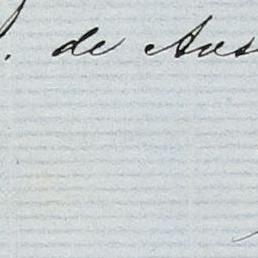 . de Aus